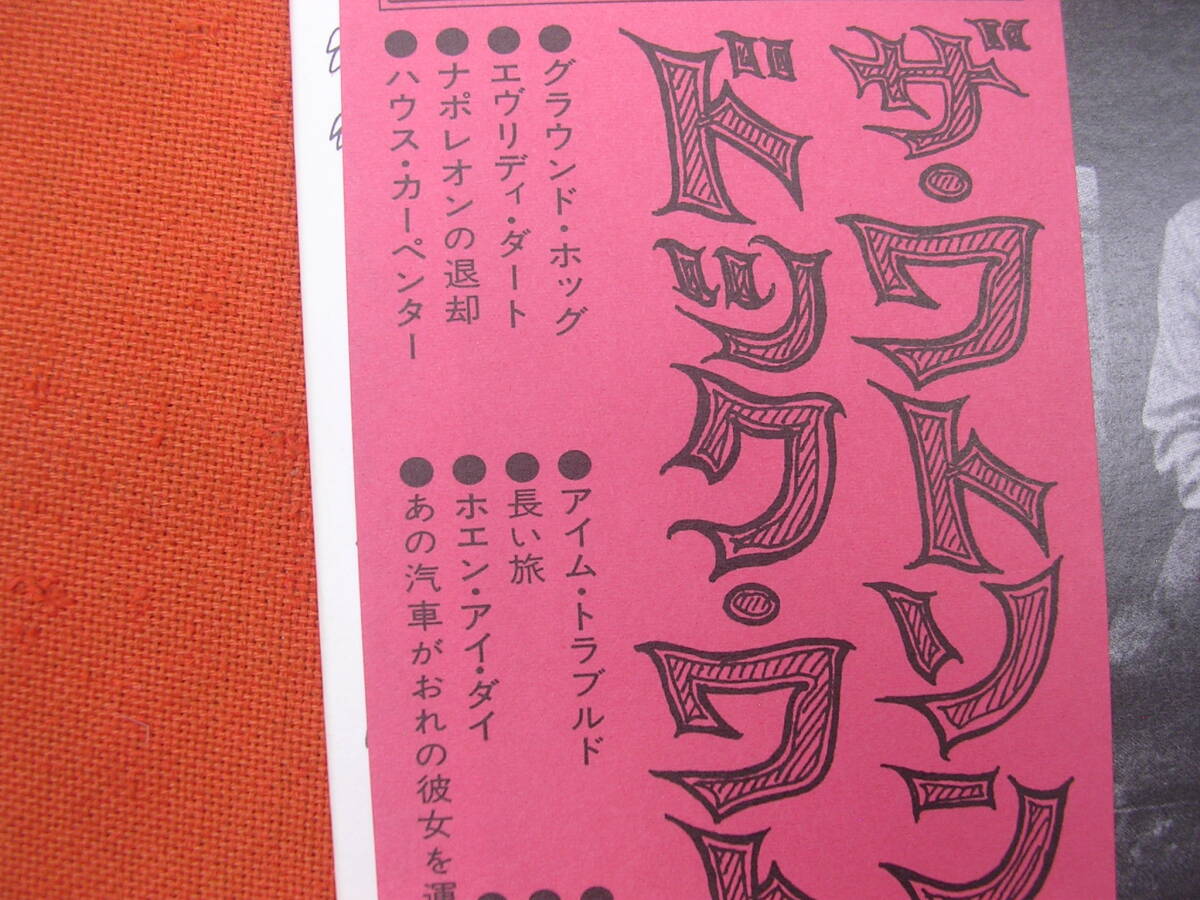 ザ・ワトソン
ドック・ワト
●グラウンド・ホッグ
●エヴリディ・ダート
●ナポレオンの退却
●ハウス・カーペンター
●アイム・トラブルド
●長い旅
●ホエン・アイ・ダイ
●あの汽車がおれの彼女を運